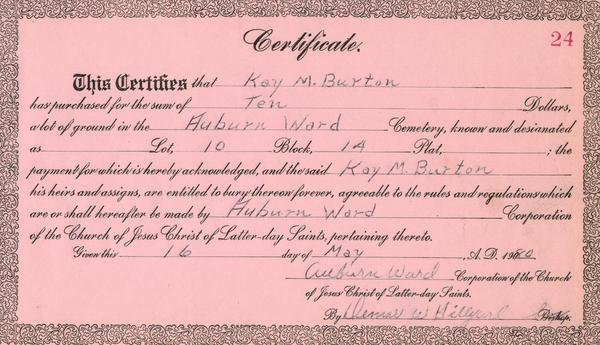 Certificate.
24
This Certifies that Kay M. Burton
has purchased for the sum of Ten Dollars,
a lot of ground in the Auburn Ward Cemetery, known and designated
as Lot, 10 Block, 14 Plat, ; the
payment for which is hereby acknowledged, and the said Kay M. Burton
his heirs and assigns, are entitled to bury thereon forever, agreeable to the rules and regulations which
are or shall hereafter be made by Auburn Ward Corporation
of the Church of Jesus Christ of Latter-day Saints, pertaining thereto.
Given this 16 day of May , A. D. 1980
Auburn Ward Corporation of the Church
of Jesus Christ of Latter-day Saints.
By W Bishop.